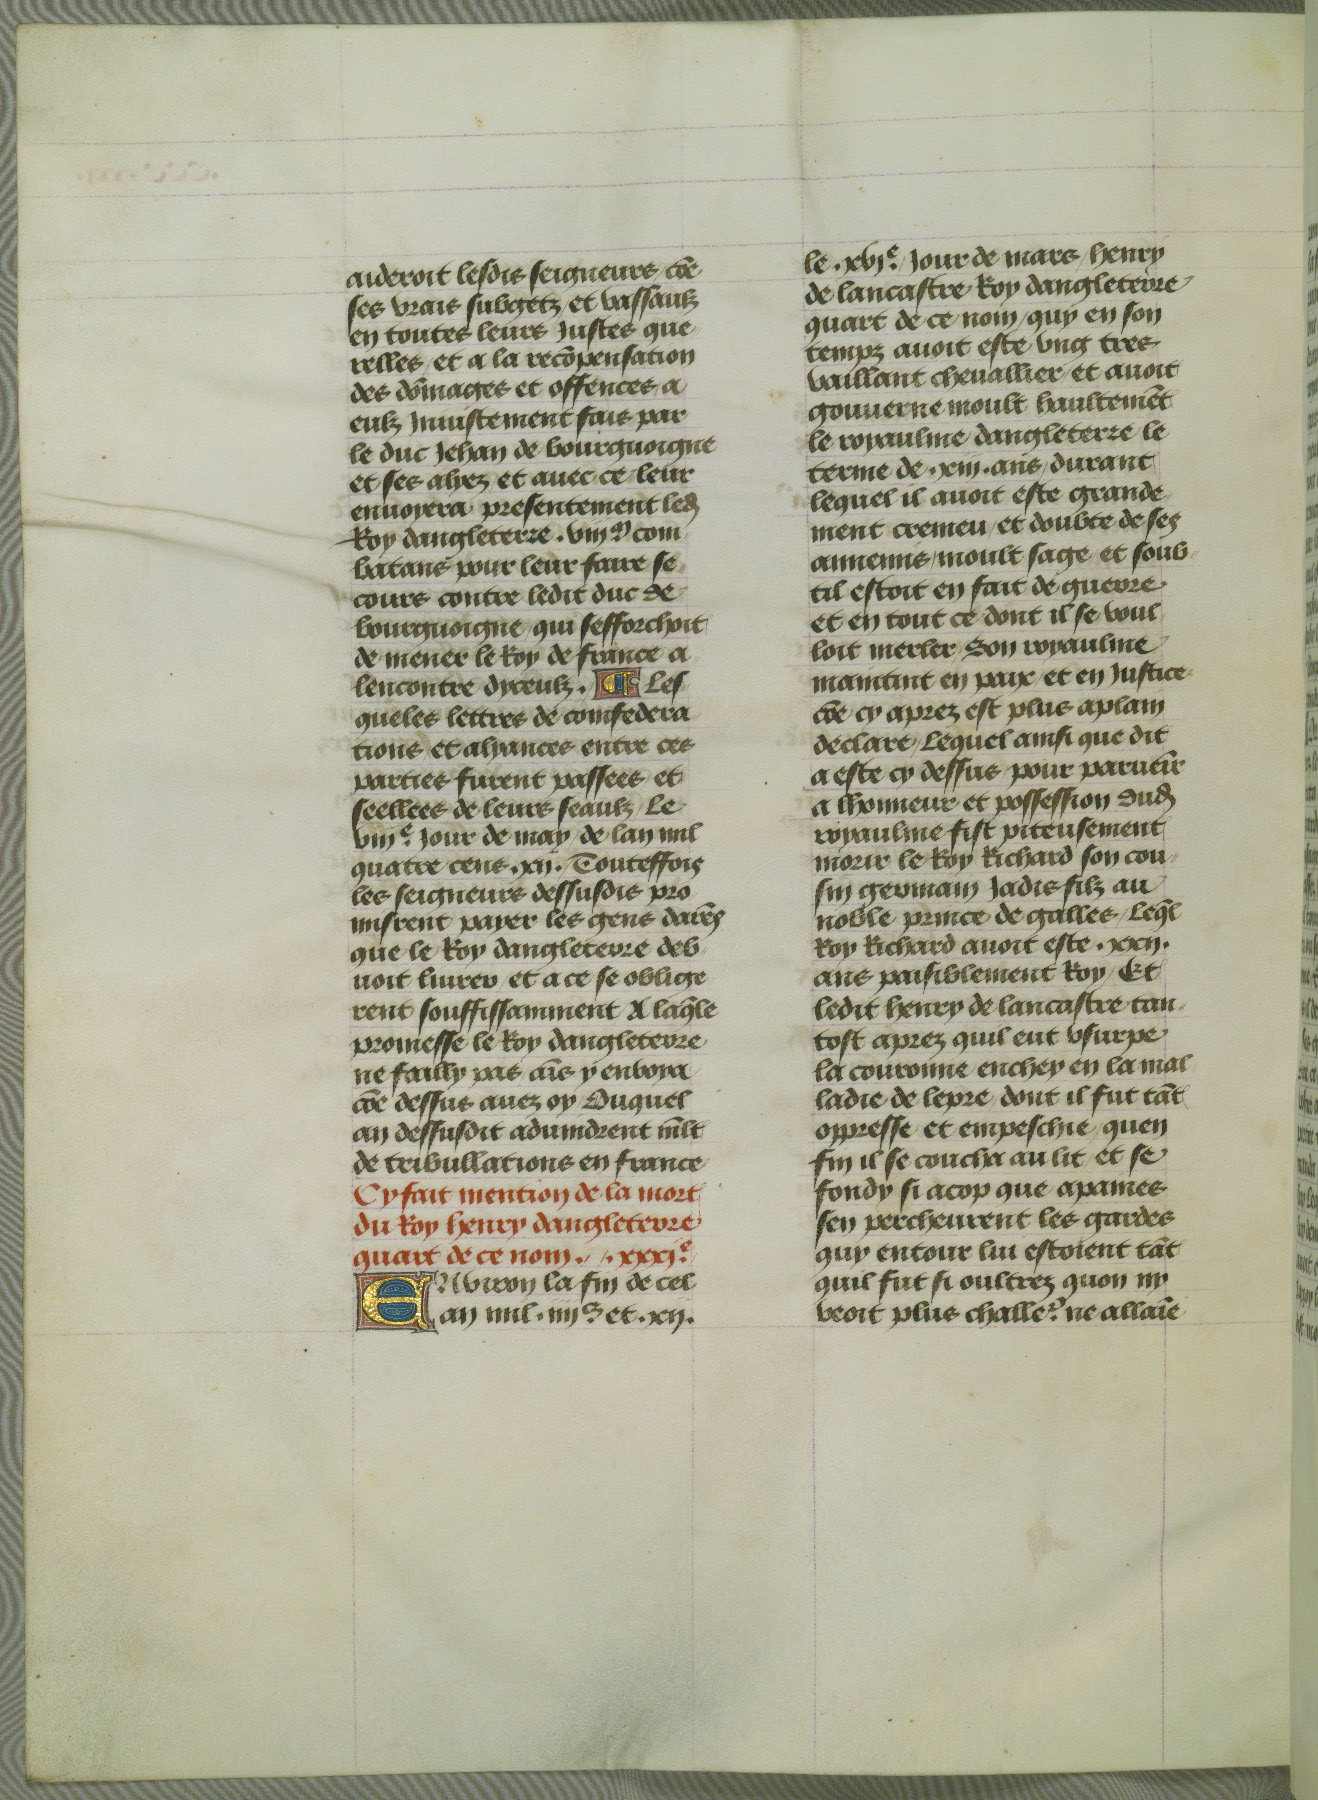 aideroit lesdis seigneurs cõe
ses vrais subgetz et vassaulz
en toutes leurs Justes que
relles et a la recõpensation
des dõmages et offences a
eulz Iniustement fais par
le duc Jehan de bourguoigne
et ses alyez et avec ce leur
envoyera presentement led
Roy dangleterre . viii.M com
batans pour leur faire se
cours contre ledit duc de
bourguoigne qui sefforchoit
de mener le Roy de france a
lencontre dyceulz . ¶ Les
queles lettres de comfedera
tions et alyances entre ces
parties furent passees et
seellees de leurs seaulz / Le
viii.e Jour de may de lan mil
quatre cens .xii. Touteffois
les seigneurs dessusdis pro
misrent payer les gens darẽs
que le Roy dangleterre deb
voit livrer et a ce se oblige
rent souffissamment A laq̃le
promesse le Roy dangleterre
ne failly pas ais y envoya
cõe dessus avez oy Duquel
an dessusdit advindrent mlt
de tribullations en france
Cy fait mention de la mort
du Roy henry dangleterre
quart de ce nom . . xxxi.e
ENviron la fin de cel
an mil . iiii.c et .xii.
le .xvi.e Jour de mars henry
de lancastre Roy dangleterre
quart de ce nom / quy en son
tempz avoit este ung tres
vaillant chevallier et avoit
gouverne moult haultemẽt
le royaulme dangleterre le
terme de .xiii. ans / durant
lequel il avoit este grande
ment cremeu et doubte de ses
annemis / moult sage et soub
til estoit en fait de guerre
et en tout ce dont il se voul
loit merler / Son royaulme
maintint en paix et en Justice
cõe cy aprez est plus aplain
declare / Lequel ainsi que dit
a este cy dessus pour parvenir
a lhonneur et possession dud
royaulme fist piteusement
morir le Roy Richard son cou
sin germain Jadis filz au
noble prince de galles / Leq̃l
Roy Richard avoit este .xxii.
ans paisiblement Roy / Et
ledit henry de lancastre tan
tost aprez quil eut usurpe
la couronne enchey en la mal
ladie de lepre dont il fut tãt
oppresse et empeschie quen
fin il se coucha au lit et se
fondy si acop que apaines
sen percheurent les gardes
quy entour lui estoient tãt
quil fut si oultrez quon ny
veoit plus challe.r ne allaĩe